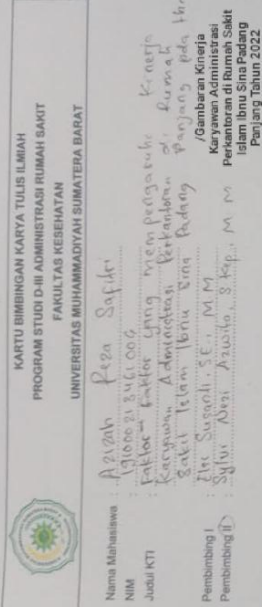 KARTU BIMBINGAN KARYA TULIS ILMIAH
PROGRAM STUDI D-III ADMINISTRASI RUMAH SAKIT
FAKULTAS KESEHATAN
UNIVERSITAS MUHAMMADIYAH SUMATERA BARAT
Nama Mahasiswa : Azizah Reza Safitri
NIM : 191000213461006
Judul KTI : Faktor-Faktor yang mempengaruhi Kinerja
Karyawan Administrasi Perkantoran di Rumah
Sakit Islam Ibnu Sina Padang Panjang pda thn
/Gambaran Kinerja
Karyawan Administrasi
Perkantoran di Rumah Sakit
Islam Ibnu Sina Padang
Panjang Tahun 2022
Pembimbing I : Elsi Susanti, S.E., M.M
Pembimbing II : Sylvi Nezi Azwita, S.Kep., M M